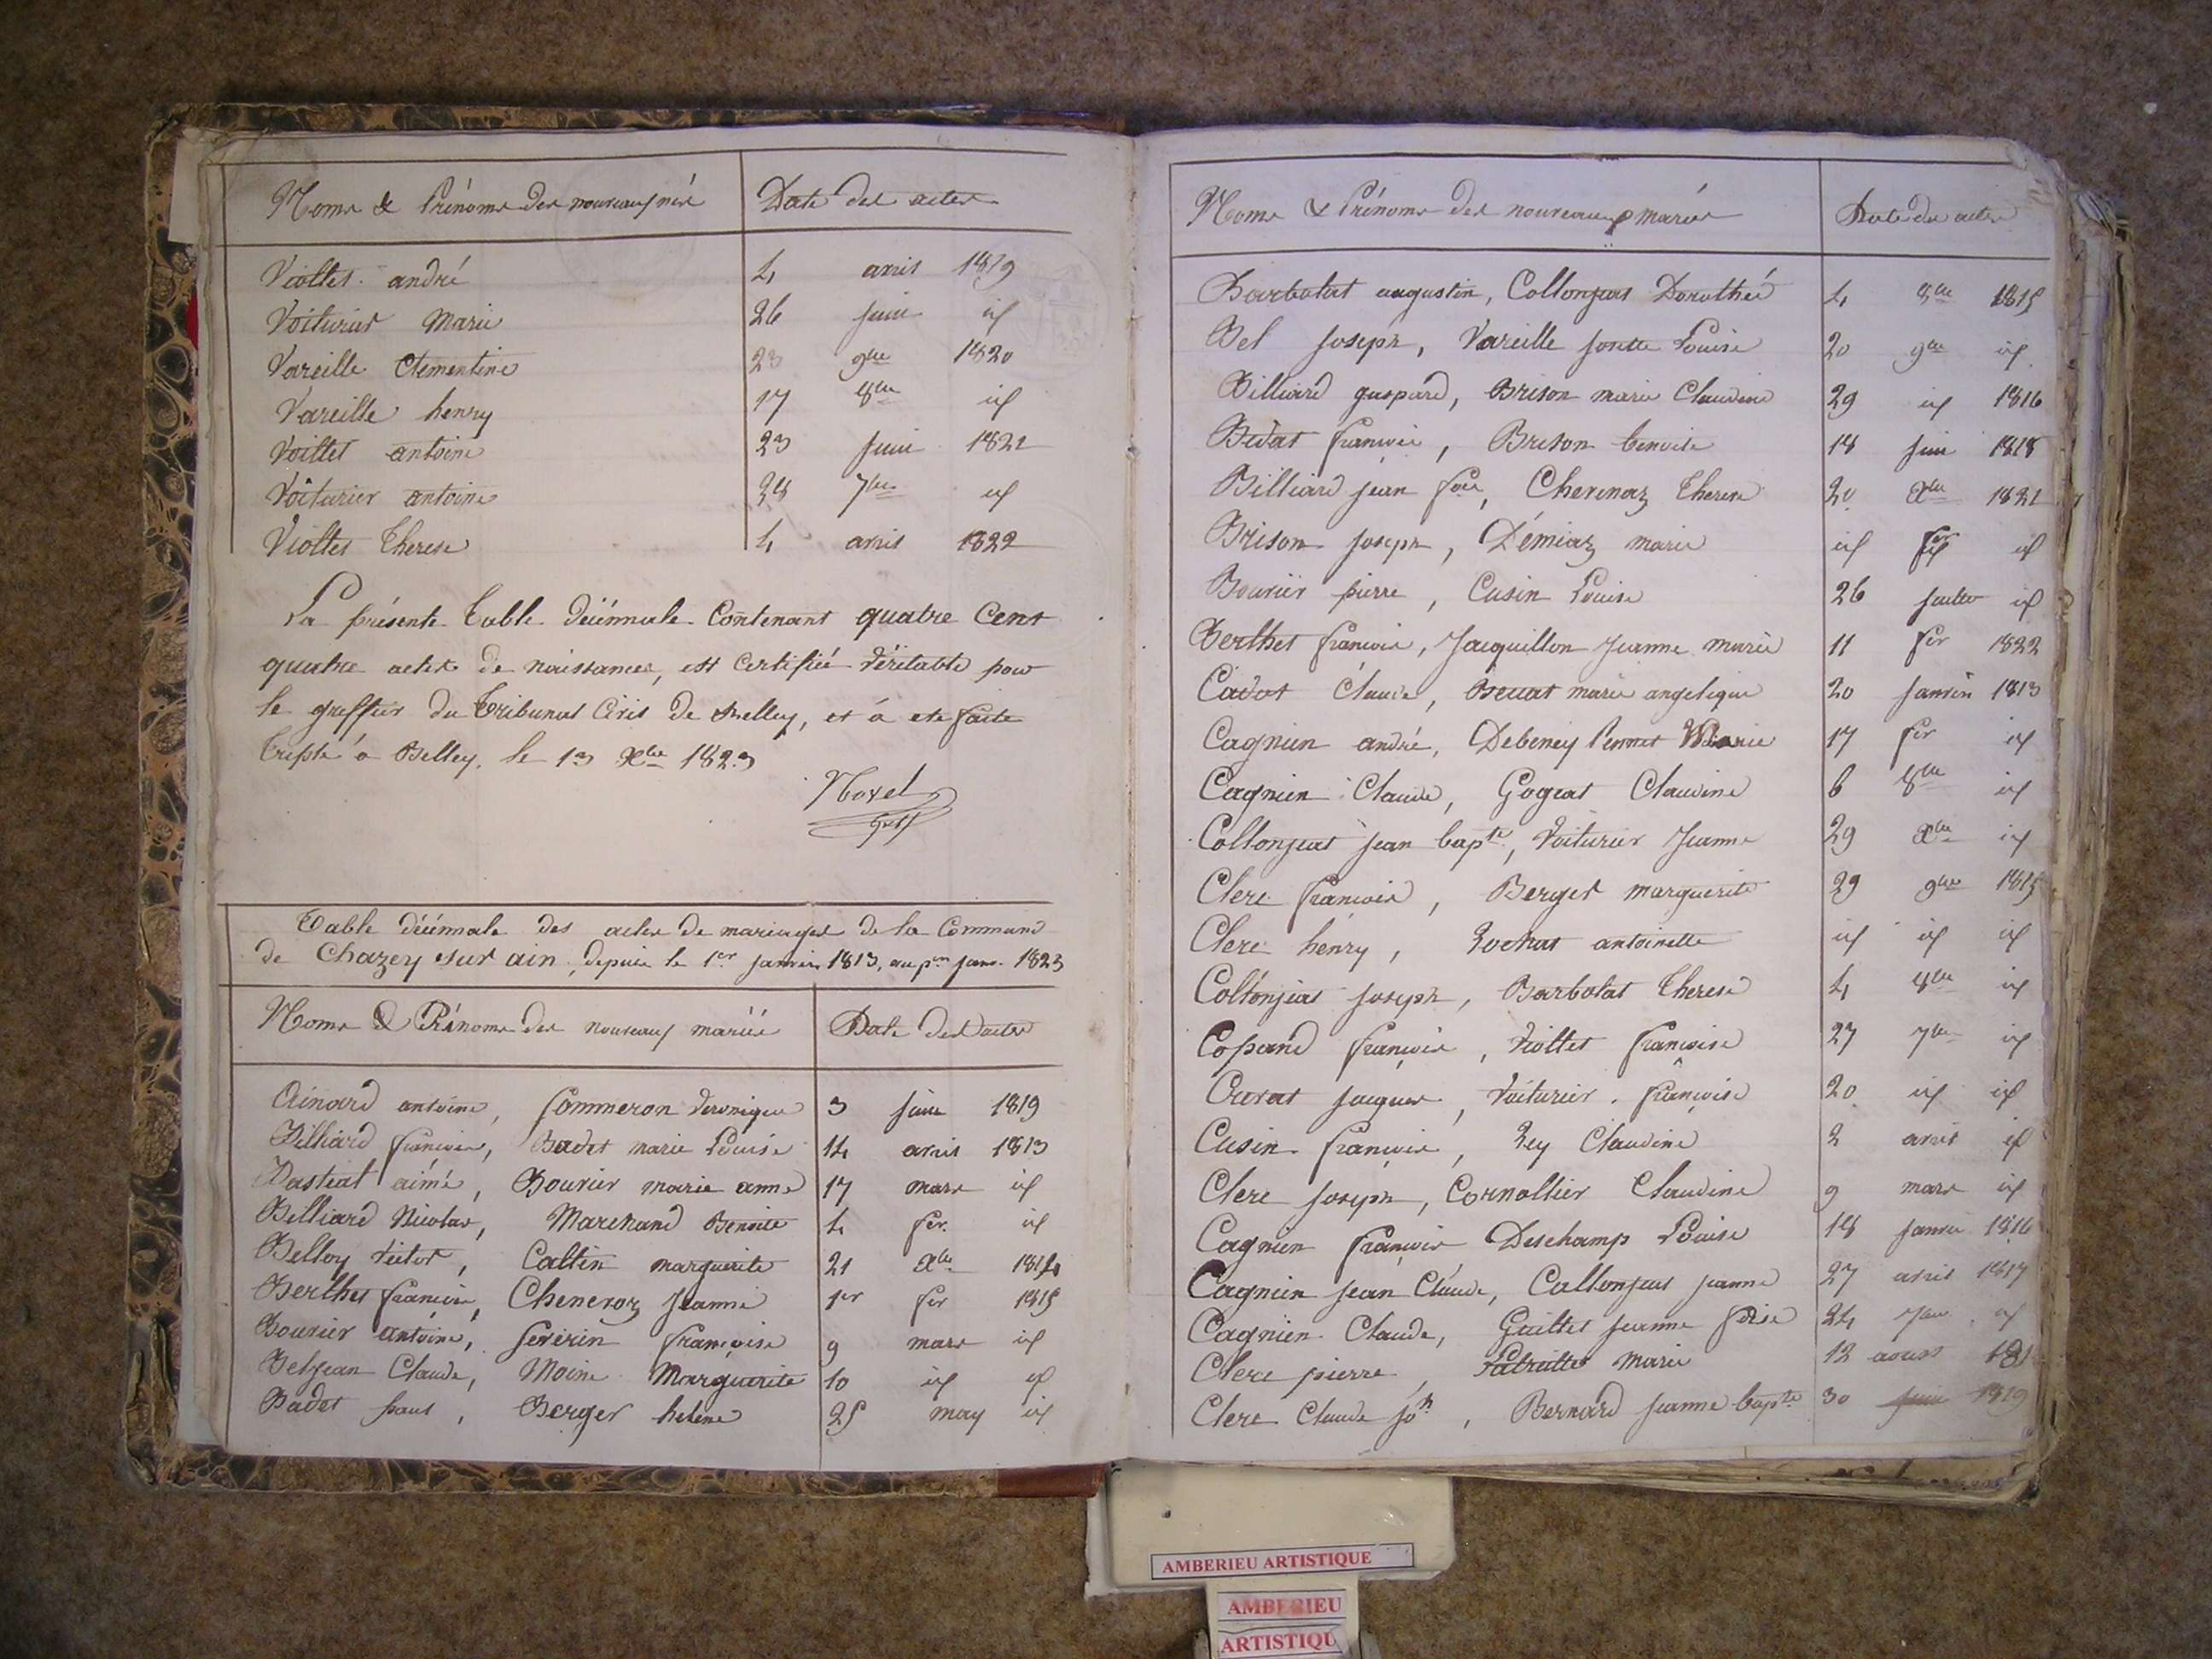 Noms & Prénoms des nouveaux nés Date des actes
Viollet andré 4 avril 1819
Voiturier Marie 26 juin id
Vareille Clementine 23 9bre 1820
Vareille henry 17 8bre id
Voillet antoine 23 juin 1821
Voiturier antoine 28 7bre id
Viollet Therese 4 avril 1822
La présente Table Décénnale Contenant quatre Cent
quatre actes de naissances, est Certifiée véritable pour
le greffier du Tribunal Civil de Belley, et a ete faite
triple à Belley, le 13 Xbre 1823
Table décénnale des actes de mariages de la Commune
de Chazey sur ain, depuis le 1er janvier 1813, au pr janv. 1823
Noms & Prénoms des nouveaux mariés Date des actes
Ainard antoine, Sommeron Veronique 3 juin 1819
Billiard françois, Badet marie Louise 14 avril 1813
Bastiat aimé, Bourier marie anne 17 mars id
Billiard Nicolas, Marchand Benoite 4 fer. id
Belloy Victor, Caltin marguerite 21 Xbre 1814
Berthet françois, Chenevoz Jeanne 1er fer 1815
Bourier antoine, Severin françoise 9 mars id
Beljean Claude, Moine Marguerite 10 id id
Badet paul, Berger helene 25 may id
Noms & Prénoms des nouveaux mariés Date des actes
Barbolat augustin, Collonjeat Dorothée 4 8bre 1815
Bel Joseph, Vareille Louise 20 9bre id
Billiard gaspard, Brison marie Claudine 29 id 1816
Bidat françois, Brison benoite 18 juin 1818
Billiard jean fois, Chevenoz Therese 20 Xbre 1821
Brison Joseph, Démiaz marie id fer id
Bourier pierre, Cusin Louise 26 juillet id
Berthet françois, Jacquillon Jeanne marie 11 fer 1822
Cadot Claude, marie angelique 20 janvier 1813
Cagnien andré, Debeney Pernet Marie 17 fer id
Cagnien Claude, Gogeat Claudine 6 8bre id
Collonjeat jean bapte, Voiturier Jeanne 29 Xbre id
Clerc françois, Berger marguerite 29 9bre 1815
Clerc henry, Rochat antoinette id id id
Collonjeat Joseph, Barbolat Therese 4 8bre id
Copard françois, Viollet françoise 27 7bre id
Curat jacques, Voiturier françoise 20 id id
Cusin françois, Rey Claudine 2 avril id
Clerc Joseph, Cornollier Claudine 9 mars id
Cagnien françois Deschamp Louise 18 janvier 1816
Cagnien jean Claude, Collonjeat jeanne 27 avril 1817
Cagnien Claude, Guillet jeanne 24 7bre id
Clerc pierre, marie 12 aoust
Clerc Claude jph, Bernard jeanne bapte 30 juin 1819
AMBERIEU ARTISTIQUE
AMBERIEU
ARTISTIQU